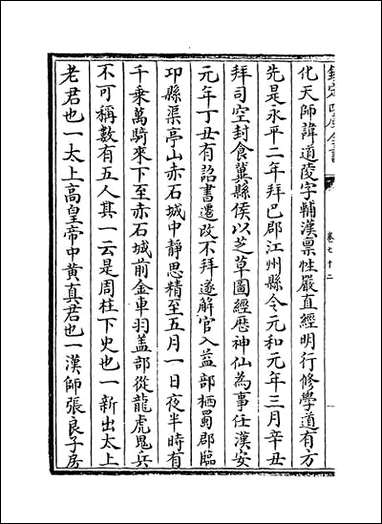 欽定四庫全書
卷七十二
化天師諱道陵字輔漢禀性嚴直經明行修學道有方
先是永平二年拜巴郡江州縣令元和元年三月辛丑
拜司空封食冀縣侯以芝草圖經歷神仙為事任漢安
元年丁丑有詔書遷改不拜遂解官入益部栖蜀郡臨
邛縣渠亭山赤石城中静思精至五月一日夜半時有
千乘萬騎來下至赤石城前金車羽蓋部從龍虎鬼兵
不可稱數有五人其一云是周柱下史也一新出太上
老君也一太上高皇帝中黄真君也一漢師張良子房